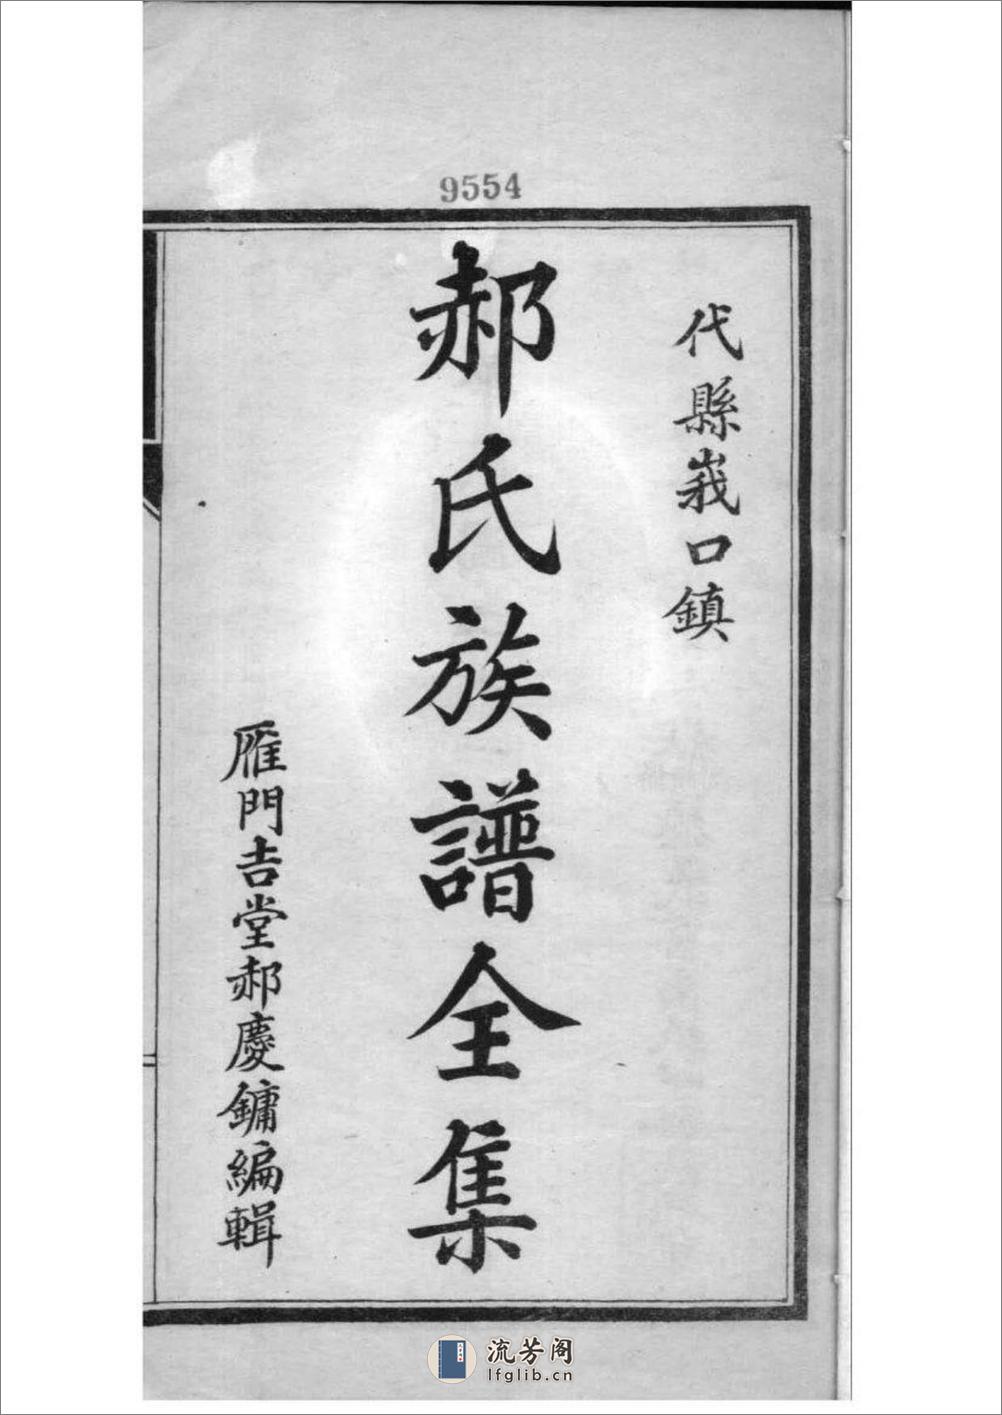 9554
代縣峩口鎮
郝氏族譜全集
雁門吉堂郝慶鏞編輯
流芳阁
lfglib.cn